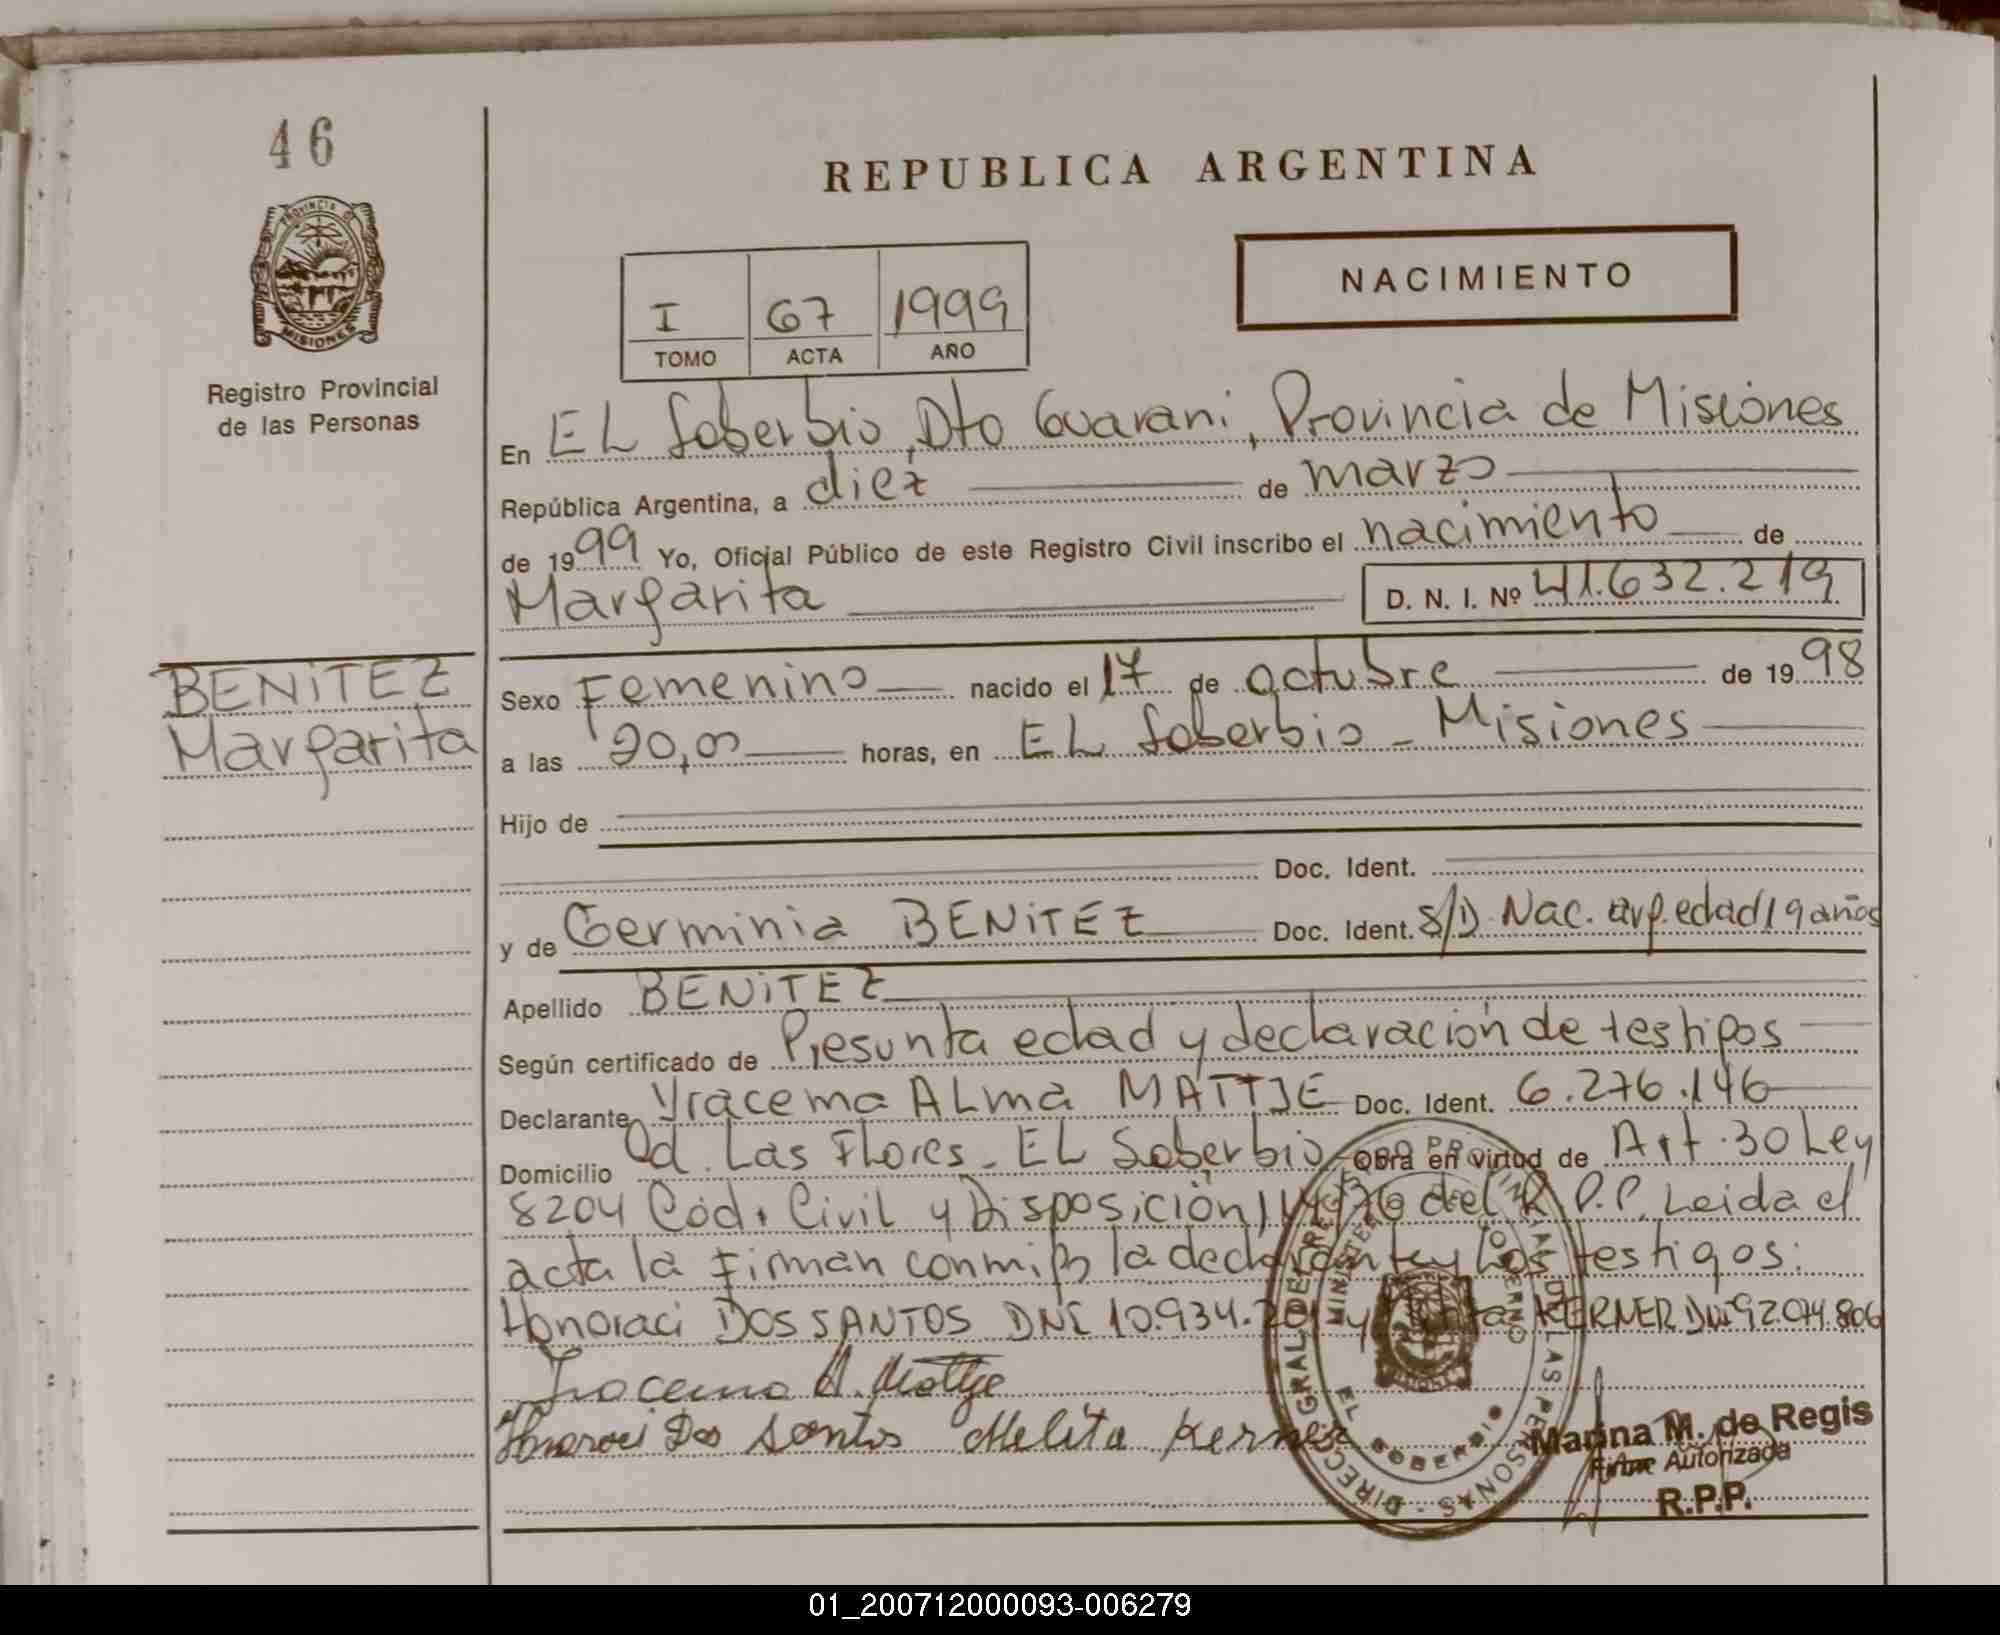 46
REPUBLICA ARGENTINA
PROVINCIA DE
MISIONES
Registro Provincial
de las Personas
NACIMIENTO
I 67 1999
TOMO ACTA AÑO
En EL Soberbio, Dto Guarani, Provincia de Misiones
República Argentina, a diez de marzo
de 1999 Yo, Oficial Público de este Registro Civil inscribo el nacimiento de
Margarita D. N. I. Nº 41.632.219
BENiTEZ
Margarita
Sexo Femenino nacido el 17 de octubre de 1998
a las 20,00 horas, en EL Soberbio - Misiones
Hijo de
Doc. Ident.
y de Germinia BENiTEZ Doc. Ident. S/D. Nac. arg. edad 19 años
Apellido BENiTEZ
Según certificado de Presunta edad y declaración de testigos
Declarante Yracema ALma MATTJE Doc. Ident. 6.276.146
Domicilio Las Flores - EL Soberbio Obra en virtud de Art. 30 Ley
8204 Cód. Civil y Disposición del R.P.P. Leida el
acta la Firman conmigo la declarante y los testigos:
Honoraci DOS SANTOS DNI 10.934. y KERNER DNI 92.044.806
Iracema A. Mattje
Honoraci Dos Santos Melita Kerner
DIRECC. GRAL. DE REGISTRO PROVINCIAL DE LAS PERSONAS
EL SOBERBIO
Marina M. de Regis
Firma Autorizada
R.P.P.
01_200712000093-006279